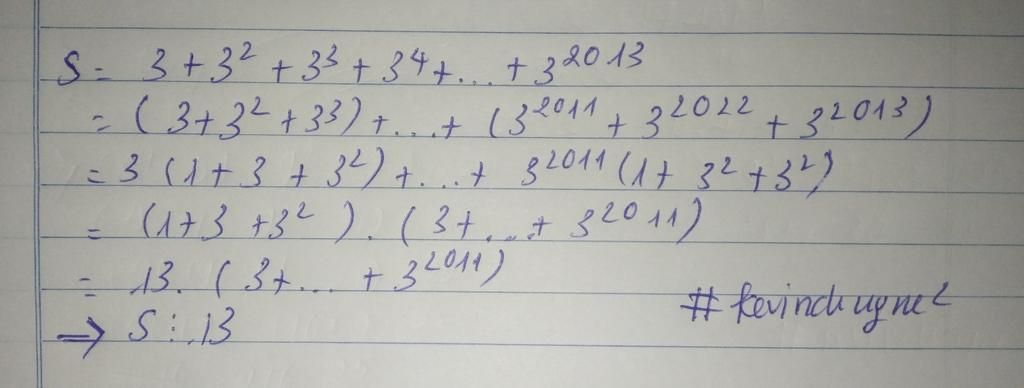 S = 3 + 3² + 3³ + 3⁴ + ... + 3²⁰¹³
= (3 + 3² + 3³) + ... + (3²⁰¹¹ + 3²⁰²² + 3²⁰¹³)
= 3 (1 + 3 + 3²) + ... + 3²⁰¹¹ (1 + 3² + 3²)
= (1 + 3 + 3²) . (3 + ... + 3²⁰¹¹)
= 13. (3 + ... + 3²⁰¹¹)
⇒ S ⋮ 13